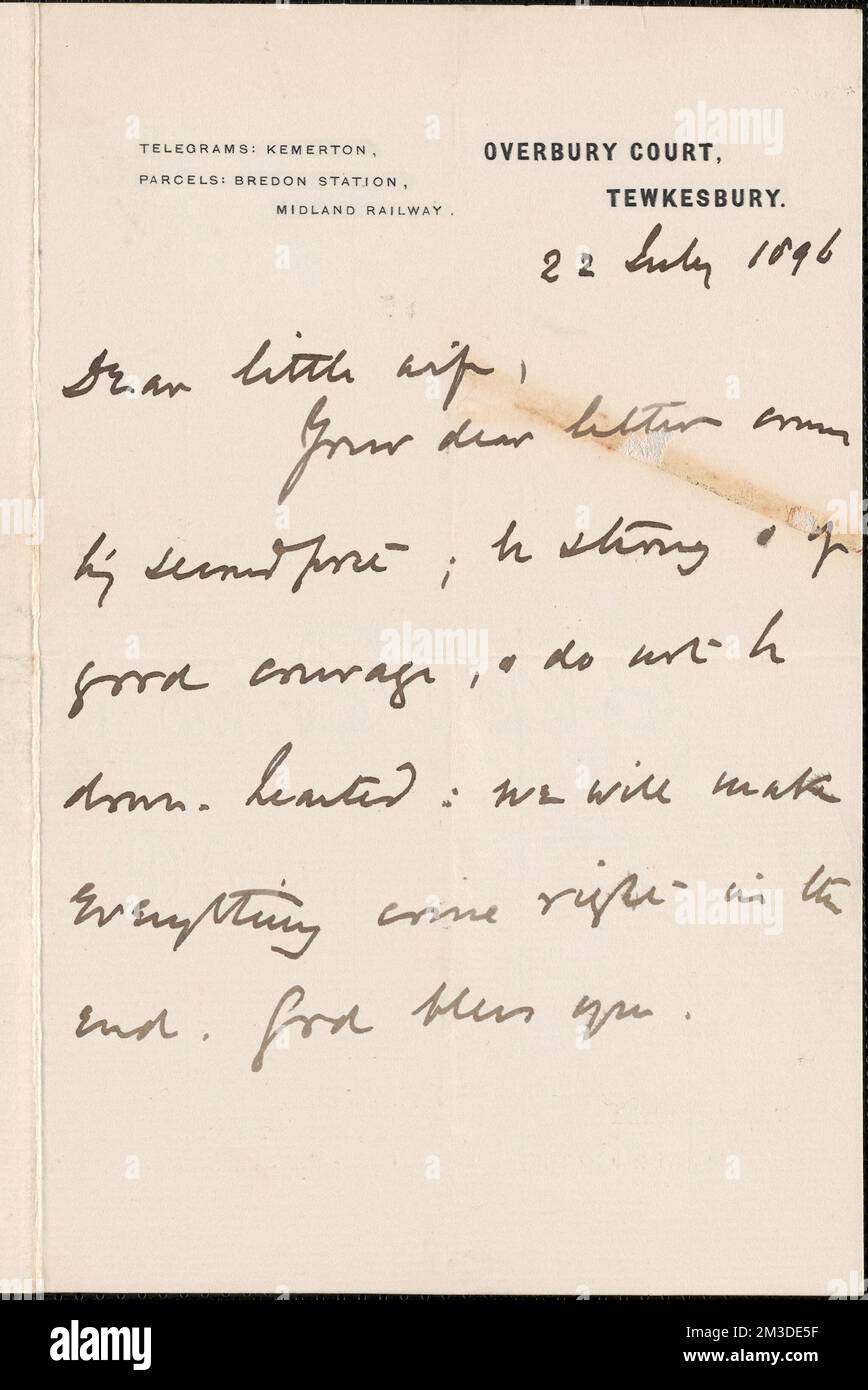 TELEGRAMS: KEMERTON,
PARCELS: BREDON STATION,
MIDLAND RAILWAY.
OVERBURY COURT,
TEWKESBURY.
22 July 1896
Dear little wife,
Your dear letter came
by second post; be strong & of
good courage, & do not be
down-hearted: we will make
Everything come right in the
end. God bless you.
alamy
Image ID: 2M3DE5F
www.alamy.com